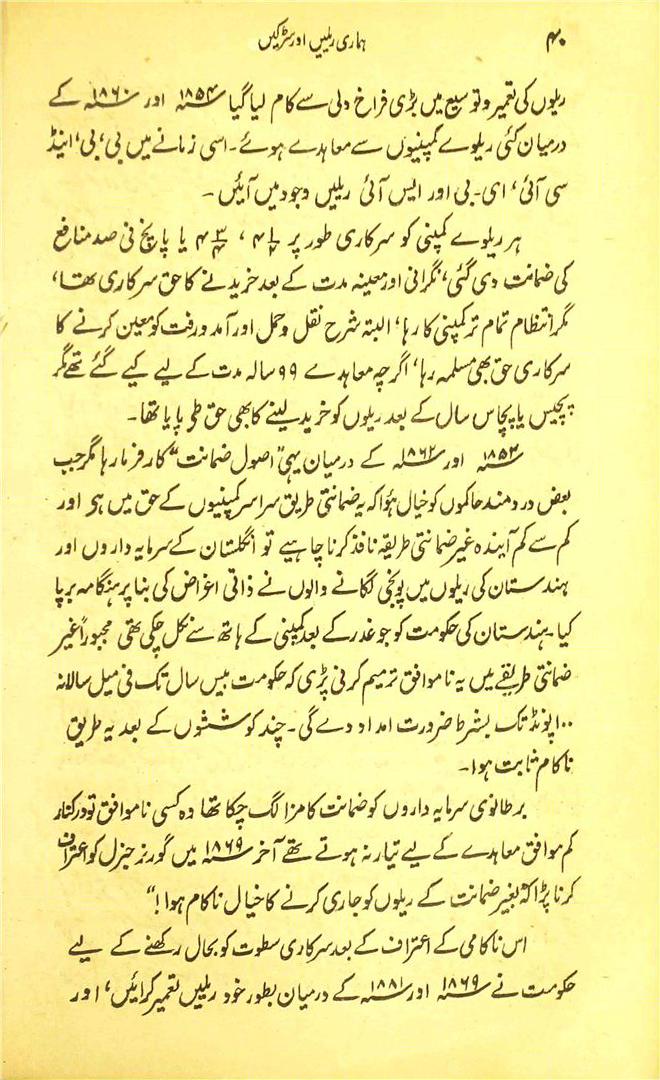 ۴۰ ہماری ریلیں اور سڑکیں
ریلوں کی تعمیر و توسیع میں بڑی فراخ دلی سے کام لیا گیا ۱۸۵۴ء اور ۱۸۶۰ء کے
درمیان کئی ریلوے کمپنیوں سے معاہدے ہوئے۔ اسی زمانے میں بی، بی، اینڈ
سی آئی، ای۔ بی اور ایس آئی ریلیں وجود میں آئیں۔
ہر ریلوے کمپنی کو سرکاری طور پر ۴½، ۴¾ یا پانچ فی صد منافع
کی ضمانت دی گئی، نگرانی اور معینہ مدت کے بعد خریدنے کا حق سرکاری تھا،
مگر انتظام تمام تر کمپنی کا رہا، البتہ شرح نقل و حمل اور آمد و رفت کو معین کرنے کا
سرکاری حق بھی مسلمہ رہا، اگرچہ معاہدے ۹۹ سالہ مدت کے لیے کیے گئے تھے مگر
پچیس یا پچاس سال کے بعد ریلوں کو خرید لینے کا بھی حق طی پایا تھا۔
۱۸۵۴ء اور ۱۸۶۲ء کے درمیان یہی ”اصول ضمانت“ کارفرما رہا مگر جب
بعض درد مند حاکموں کو خیال ہؤا کہ یہ ضمانتی طریق سراسر کمپنیوں کے حق میں ہی اور
کم سے کم آیندہ غیر ضمانتی طریقہ نافذ کرنا چاہیے تو انگلستان کے سرمایہ داروں اور
ہندستان کی ریلوں میں پونجی لگانے والوں نے ذاتی اغراض کی بنا پر ہنگامہ برپا
کیا۔ ہندستان کی حکومت کو جو غدر کے بعد کمپنی کے ہاتھ سے نکل چکی تھی مجبوراً غیر
ضمانتی طریقے میں یہ ناموافق ترمیم کرنی پڑی کہ حکومت بیس سال تک فی میل سالانہ
۱۰۰ پونڈ تک بشرط ضرورت امداد دے گی۔ چند کوششوں کے بعد یہ طریق
ناکام ثابت ہوا۔
برطانوی سرمایہ داروں کو ضمانت کا مزا لگ چکا تھا وہ کسی ناموافق تو درکنار
کم موافق معاہدے کے لیے تیار نہ ہوتے تھے آخر ۱۸۶۹ء میں گورنر جنرل کو اعتراف
کرنا پڑا کہ ”بغیر ضمانت کے ریلوں کو جاری کرنے کا خیال ناکام ہوا!“
اس ناکامی کے اعتراف کے بعد سرکاری سطوت کو بحال رکھنے کے لیے
حکومت نے ۱۸۶۹ء اور ۱۸۸۱ء کے درمیان بطور خود ریلیں تعمیر کرائیں، اور